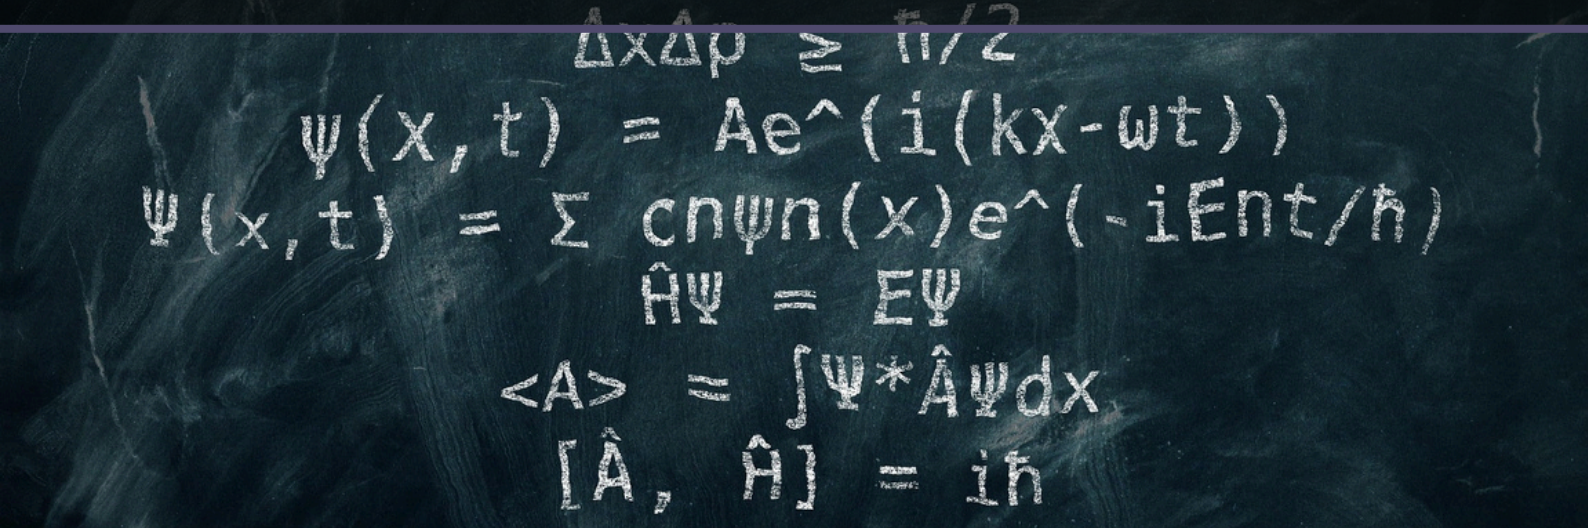 ΔxΔp ≥ ħ/2
ψ(x,t) = Ae^(i(kx-ωt))
Ψ(x,t) = Σ cnψn(x)e^(-iEnt/ħ)
ĤΨ = EΨ
<A> = ∫Ψ*ÂΨdx
[Â, Ĥ] = iħ